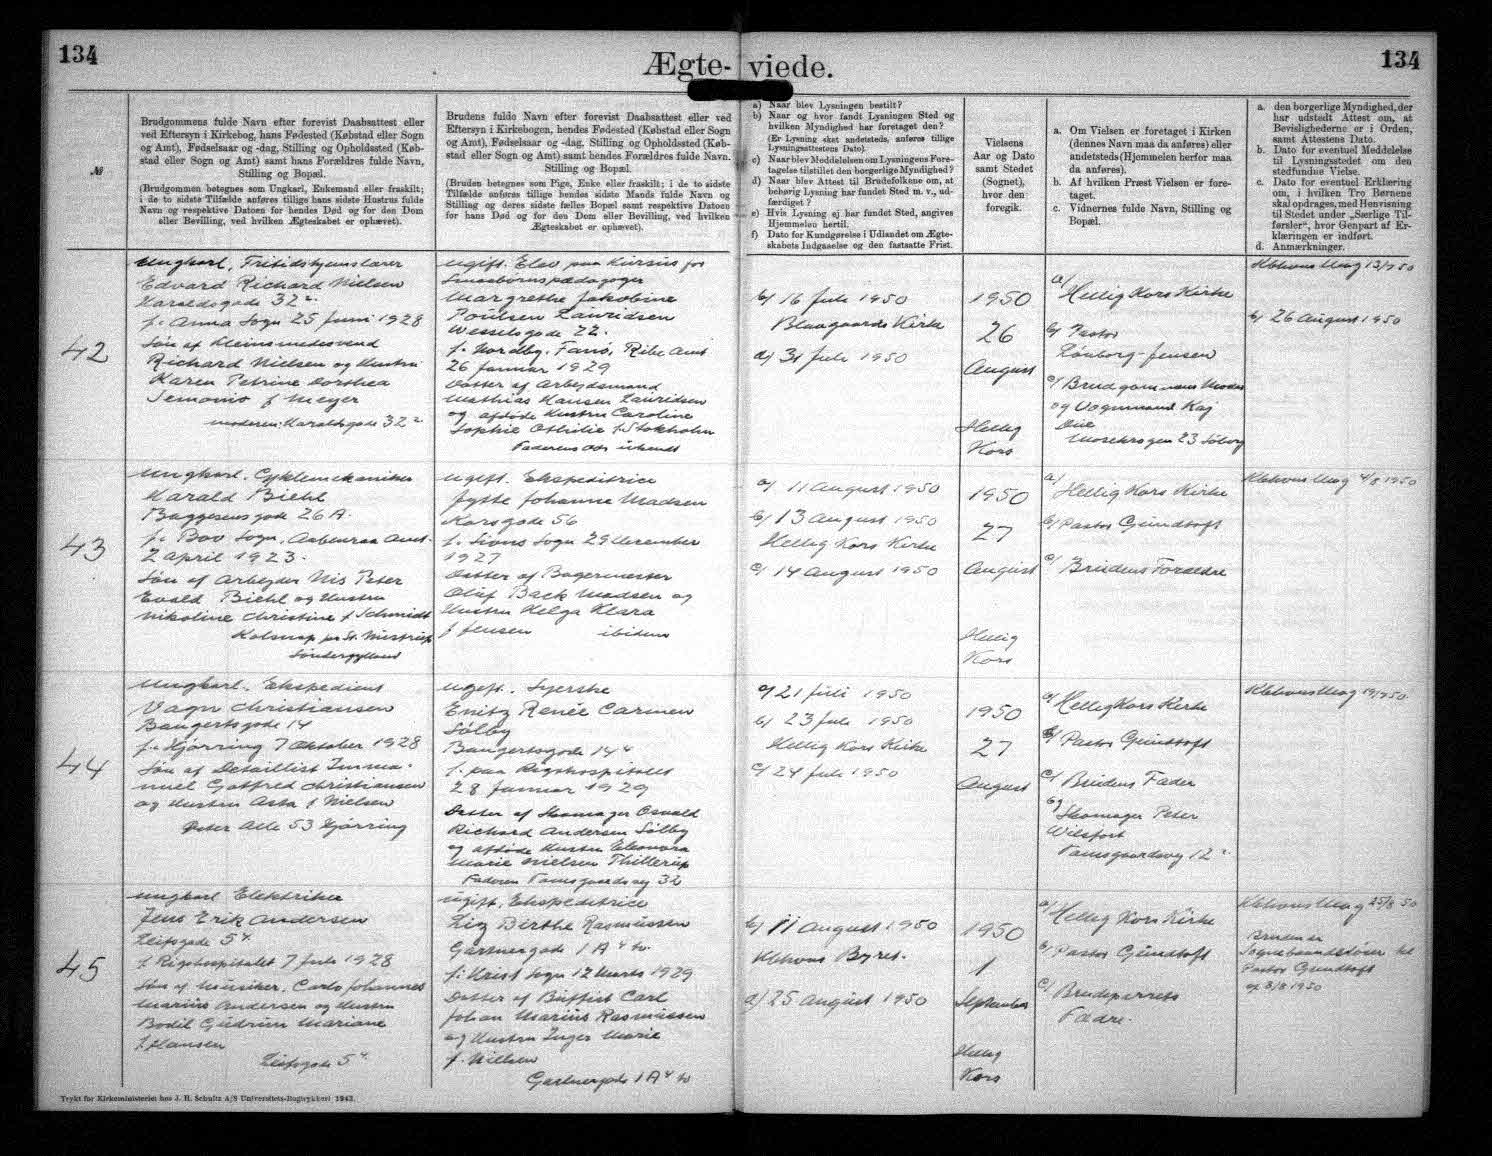 134
Ægte-viede.
134
№
Brudgommens fulde Navn efter forevist Daabsattest eller
ved Eftersyn i Kirkebog, hans Fødested (Købstad eller Sogn
og Amt), Fødselsaar og -dag, Stilling og Opholdssted (Køb-
stad eller Sogn og Amt) samt hans Forældres fulde Navn,
Stilling og Bopæl.
(Brudgommen betegnes som Ungkarl, Enkemand eller fraskilt;
i de to sidste Tilfælde anføres tillige hans sidste Hustrus fulde
Navn og respektive Datoen for hendes Død og for den Dom
eller Bevilling, ved hvilken Ægteskabet er ophævet).
Brudens fulde Navn efter forevist Daabsattest eller ved
Eftersyn i Kirkebogen, hendes Fødested (Købstad eller Sogn
og Amt), Fødselsaar og -dag, Stilling og Opholdssted (Køb-
stad eller Sogn og Amt) samt hendes Forældres fulde Navn,
Stilling og Bopæl.
(Bruden betegnes som Pige, Enke eller fraskilt; i de to sidste
Tilfælde anføres tillige hendes sidste Mands fulde Navn og
Stilling og deres sidste fælles Bopæl samt respektive Datoen
for hans Død og for den Dom eller Bevilling, ved hvilken
Ægteskabet er ophævet).
a) Naar blev Lysningen bestilt?
b) Naar og hvor fandt Lysningen Sted og
hvilken Myndighed har foretaget den?
(Er Lysning sket andetsteds, anføres tillige
Lysningsattestens Dato).
c) Naar blev Meddelelsen om Lysningens Fore-
tagelse tilstillet den borgerlige Myndighed?
d) Naar blev Attest til Brudefolkene om, at
behørig Lysning har fundet Sted m. v., ud-
færdiget?
e) Hvis Lysning ej har fundet Sted, angives
Hjemmelen hertil.
f) Dato for Kundgørelse i Udlandet om Ægte-
skabets Indgaaelse og den fastsatte Frist.
Vielsens
Aar og Dato
samt Stedet
(Sognet),
hvor den
foregik.
a. Om Vielsen er foretaget i Kirken
(dennes Navn maa da anføres) eller
andetsteds (Hjemmelen herfor maa
da anføres).
b. Af hvilken Præst Vielsen er fore-
taget.
c. Vidnernes fulde Navn, Stilling og
Bopæl.
a. den borgerlige Myndighed, der
har udstedt Attest om, at
Bevislighederne er i Orden,
samt Attestens Dato.
b. Dato for eventuel Meddelelse
til Lysningsstedet om den
stedfundne Vielse.
c. Dato for eventuel Erklæring
om, i hvilken Tro Børnene
skal opdrages, med Henvisning
til Stedet under „Særlige Til-
førsler“, hvor Genpart af Er-
klæringen er indført.
d. Anmærkninger.
42
Ungkarl, Fritidshjemslærer
Edvard Richard Nielsen
Haraldsgade 32²
f. Anna Sogn 25 Juni 1928
Søn af Kleinsmedesvend
Richard Nielsen og Hustru
Karen Petrine Dorthea
f. Meyer
moderen: Haraldsgade 32²
ugift. Elev paa Kursus for
Smaabørnspædagoger
Margrethe Jakobine
Poulsen Lauridsen
Wesselsgade 22.
f. Nordby, Fanø, Ribe Amt
26 Januar 1929
Datter af Arbejdsmand
Mathias Hansen Lauridsen
og afdøde Hustru Caroline
Sophie Othilie f. Stokholm
Faderens Adr. ubekendt
b) 16 Juli 1950
Blaagaards Kirke
d) 31 Juli 1950
1950
26
August
Hellig
Kors
a) Hellig Kors Kirke
b) Pastor
Lönborg-Jensen
c) Brudgommens Moder
og Vognmand Kaj
Due
Mosekrogen 23 Søborg
Kbhvns Mag 13/7 50
b) 26 August 1950
43
Ungkarl. Cyklemekaniker
Harald Biehl
Baggesensgade 26A.
f. Bov Sogn, Aabenraa Amt.
2 April 1923.
Søn af Arbejder Nis Peter
Evald Biehl og Hustru
Nikoline Christine f. Schmidt
Sønderjylland
ugift. Ekspeditrice
Jytte Johanne Madsen
Korsgade 56
f. Sions Sogn 29 December
1927
Datter af Bagermester
Oluf Back Madsen og
Hustru Helga Klara
f. Jensen ibidem
a) 11 August 1950
b) 13 August 1950
Hellig Kors Kirke
c) 14 August 1950
1950
27
August
Hellig
Kors
a) Hellig Kors Kirke
b) Pastor Gundtoft
c) Brudens Forældre
Kbhvns Mag 4/8 1950
44
Ungkarl. Ekspedient
Vagn Christiansen
Bangertsgade 14
f. Hjørring 7 Oktober 1928
Søn af Detaillist Imma-
nuel Gotfred Christiansen
og Hustru Asta f. Nielsen
Øster Alle 53 Hjørring
ugift. Syerske
Enitz Renée Carmen
Sølby
Bangertsgade 14⁴
f. paa Rigshospitalet
28 Januar 1929
Datter af Skomager Osvald
Richard Andersen Sølby
og afdøde Hustru Eleonora
Marie Nielsen Thillerup
Faderen Tamsgaardsvej 32
a) 21 Juli 1950
b) 23 Juli 1950
Hellig Kors Kirke
c) 24 Juli 1950
1950
27
August
a) Hellig Kors Kirke
b) Pastor Gundtoft
c) Brudens Fader
og
Skomager Peter
Tamsgaardsvej 12²
Kbhvns Mag 19/7 50
45
Ungkarl Elektriker
Jens Erik Andersen
Leifsgade 5⁴
f. Rigshospitalet 7 Juli 1928
Søn af Musiker, Carlo Johannes
Marius Andersen og Hustru
Bodil Gudrun Mariane
f. Hansen
Leifsgade 5⁴
ugift. Ekspeditrice
Lis Birthe Rasmussen
Gartnergade 1A⁴ tv
f. Krist Sogn 12 Marts 1929
Datter af Buffist Carl
Johan Marius Rasmussen
og Hustru Inger Marie
f. Nielsen
Gartnergade 1A⁴ tv
b) 11 August 1950
Kbhvns Byret.
d) 25 August 1950
1950
1
September
Hellig
Kors
a) Hellig Kors Kirke
b) Pastor Gundtoft
c) Brudeparrets
Fædre.
Kbhvns Mag 25/8 50
Bruden er
Sognebaandsløser til
Pastor Gundtoft
af 3/8 1950
Trykt for Kirkeministeriet hos J. H. Schultz A/S Universitets-Bogtrykkeri 1943.